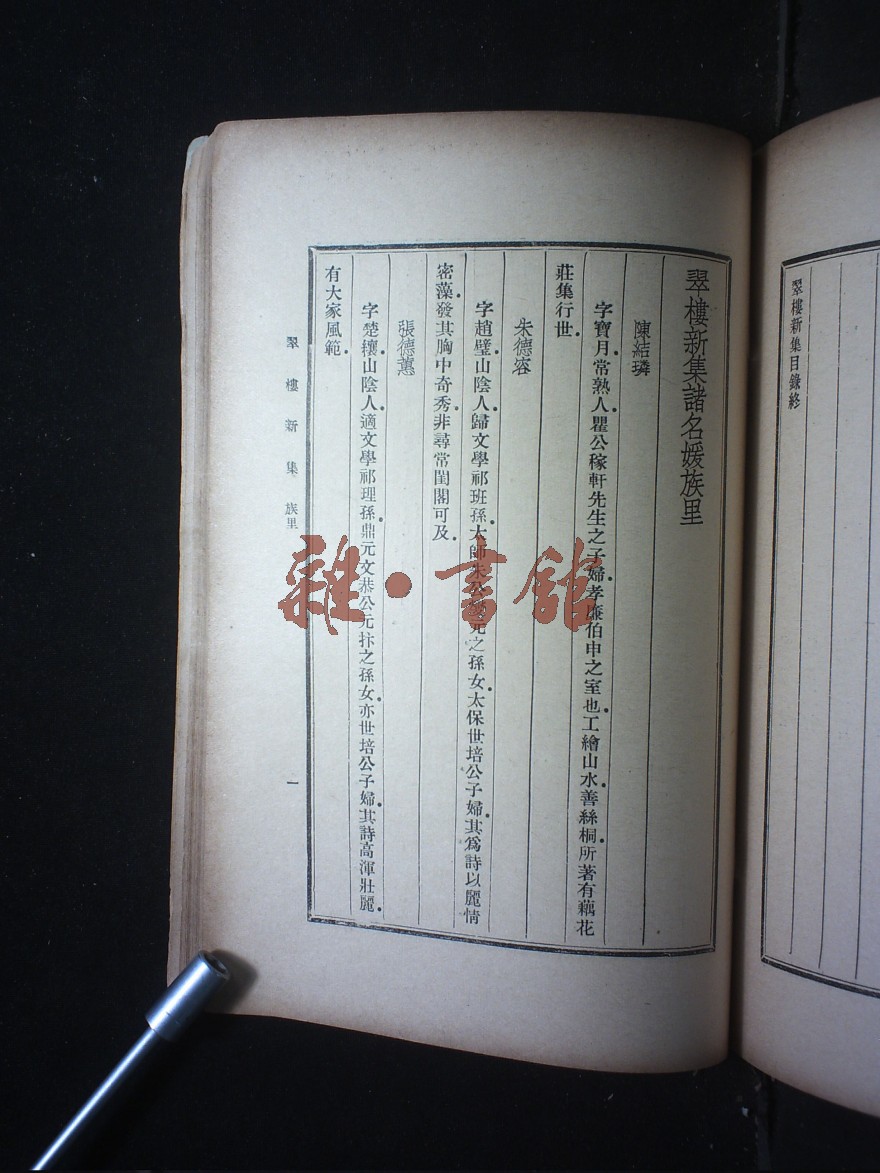 翠樓新集目錄終
翠樓新集諸名媛族里
陳結璘
字寶月常熟人瞿公稼軒先生之子婦孝廉伯申之室也工繪山水善絲桐所著有藕花
莊集行世
朱德容
字趙璧山陰人歸文學祁班孫太師朱公燮元之孫女太保世培公子婦其爲詩以麗情
密藻發其胸中奇秀非尋常閨閣可及
張德蕙
字楚纕山陰人適文學祁理孫鼎元文恭公元忭之孫女亦世培公子婦其詩高渾壯麗
有大家風範
翠樓新集 族里 一
雜·書館